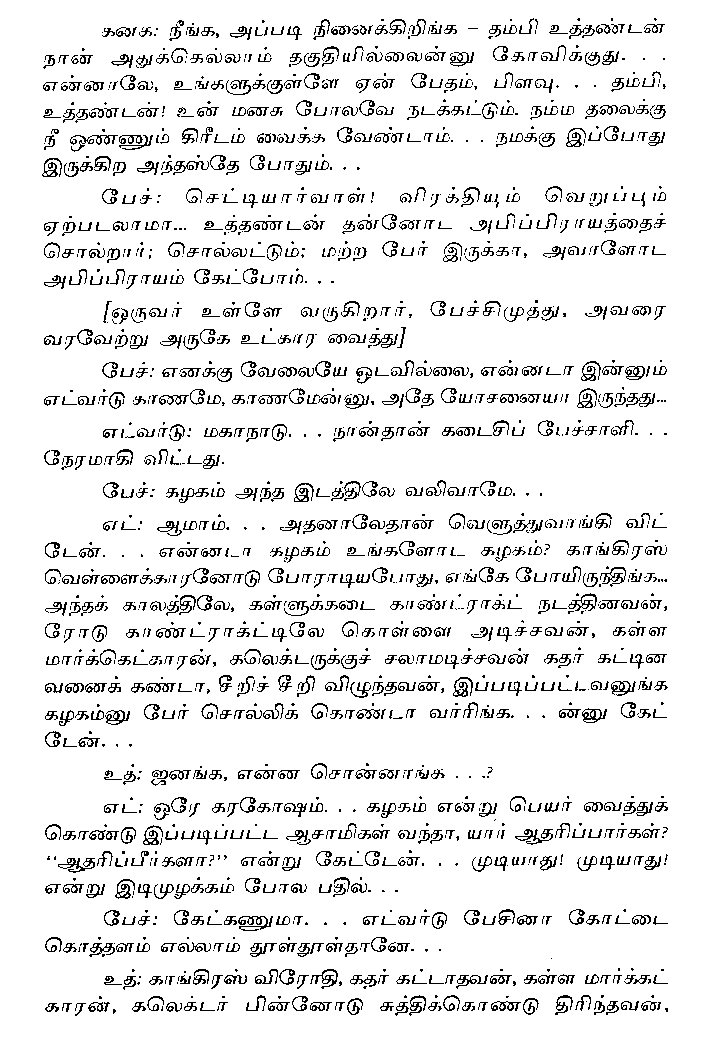 கனக: நீங்க, அப்படி நினைக்கிறிங்க – தம்பி உத்தண்டன்
நான் அதுக்கெல்லாம் தகுதியில்லைன்னு கோவிக்குது. . .
என்னாலே, உங்களுக்குள்ளே ஏன் பேதம், பிளவு. . . தம்பி,
உத்தண்டன்! உன் மனசு போலவே நடக்கட்டும். நம்ம தலைக்கு
நீ ஒண்ணும் கிரீடம் வைக்க வேண்டாம். . . நமக்கு இப்போது
இருக்கிற அந்தஸ்தே போதும். . .
பேச்: செட்டியார்வாள்! விரக்தியும் வெறுப்பும்
ஏற்படலாமா... உத்தண்டன் தன்னோட அபிப்பிராயத்தைச்
சொல்றார்; சொல்லட்டும்; மற்ற பேர் இருக்கா, அவாளோட
அபிப்பிராயம் கேட்போம். . .
[ஒருவர் உள்ளே வருகிறார், பேச்சிமுத்து, அவரை
வரவேற்று அருகே உட்கார வைத்து]
பேச்: எனக்கு வேலையே ஓடவில்லை, என்னடா இன்னும்
எட்வர்டு காணமே, காணமேன்னு, அதே யோசனையா இருந்தது...
எட்வர்டு: மகாநாடு. . . நான்தான் கடைசிப் பேச்சாளி. . .
நேரமாகி விட்டது.
பேச்: கழகம் அந்த இடத்திலே வலிவாமே. . .
எட்: ஆமாம். . . அதனாலேதான் வெளுத்துவாங்கி விட்
டேன். . . என்னடா கழகம் உங்களோட கழகம்? காங்கிரஸ்
வெள்ளைக்காரனோடு போராடியபோது, எங்கே போயிருந்திங்க...
அந்தக் காலத்திலே, கள்ளுக்கடை காண்ட்ராக்ட் நடத்தினவன்,
ரோடு காண்ட்ராக்ட்டிலே கொள்ளை அடிச்சவன், கள்ள
மார்க்கெட்காரன், கலெக்டருக்குச் சலாமடிச்சவன் கதர் கட்டின
வனைக் கண்டா, சீறிச் சீறி விழுந்தவன், இப்படிப்பட்டவனுங்க
கழகம்னு பேர் சொல்லிக் கொண்டா வர்ரிங்க. . . ன்னு கேட்
டேன். . .
உத்: ஜனங்க, என்ன சொன்னாங்க . . .?
எட்: ஒரே கரகோஷம். . . கழகம் என்று பெயர் வைத்துக்
கொண்டு இப்படிப்பட்ட ஆசாமிகள் வந்தா, யார் ஆதரிப்பார்கள்?
“ஆதரிப்பீர்களா?” என்று கேட்டேன். . . முடியாது! முடியாது!
என்று இடிமுழக்கம் போல பதில். . .
பேச்: கேட்கணுமா. . . எட்வர்டு பேசினா கோட்டை
கொத்தளம் எல்லாம் தூள்தூள்தானே. . .
உத்: காங்கிரஸ் விரோதி, கதர் கட்டாதவன், கள்ள மார்க்கட்
காரன், கலெக்டர் பின்னோடு சுத்திக்கொண்டு திரிந்தவன்,